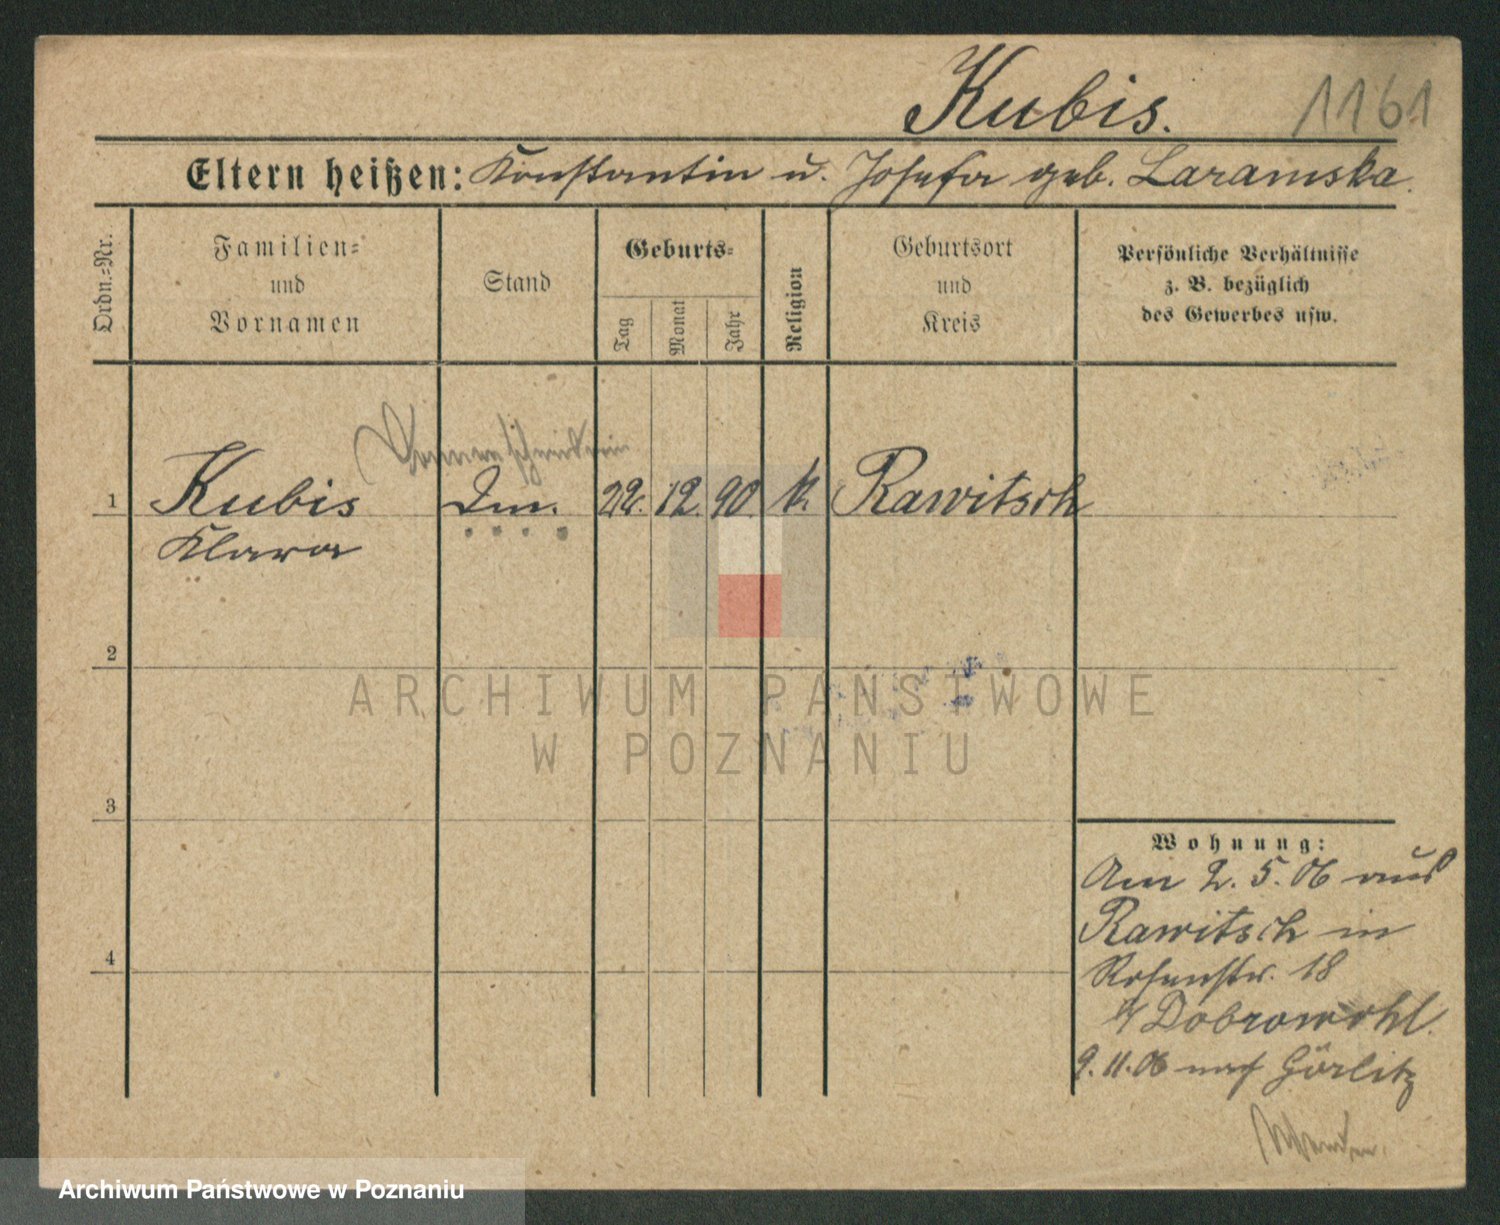 Kubis. 1161
Eltern heißen: Konstantin u. Josefa geb. Laramska.
Ordn.=Nr.
Familien=
und
Vornamen
Stand
Geburts=
Tag
Monat
Jahr
Religion
Geburtsort
und
Kreis
Persönliche Verhältnisse
z. B. bezüglich
des Gewerbes usw.
Damenschneiderin
1 Kubis 22. 12. 90. k. Rawitsch
Klara
2
ARCHIWUM PAŃSTWOWE
W POZNANIU
3
Wohnung:
Am 2. 5. 06 aus
Rawitsch in
Rosenstr. 18
b/ Dobrowohl.
4
9. 11. 06 nach Görlitz
Archiwum Państwowe w Poznaniu